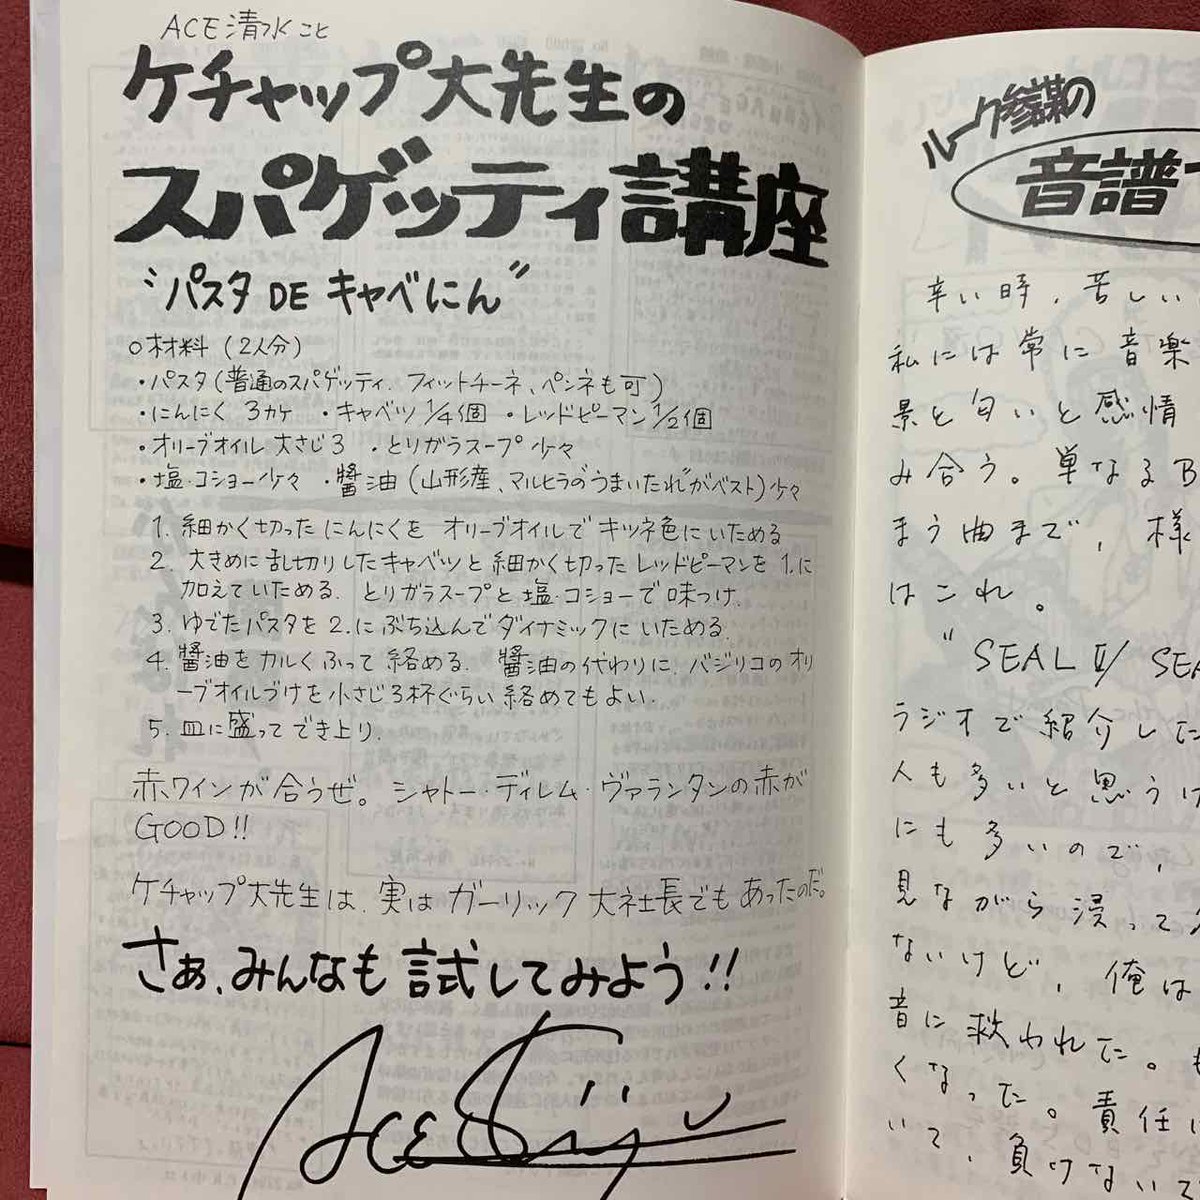 ACE清水こと
ケチャップ大先生の
スパゲッティ講座
"パスタ DE キャベにん"
○材料(2人分)
・パスタ(普通のスパゲッティ、フィットチーネ、ペンネも可)
・にんにく 3カケ ・キャベツ1/4個 ・レッドピーマン1/2個
・オリーブオイル 大さじ3 ・とりガラスープ少々
・塩・コショー少々 ・醬油(山形産、マルヒラの"うまいたれ"がベスト)少々
1. 細かく切ったにんにくを オリーブオイルで キツネ色にいためる
2. 大きめに乱切りしたキャベツと細かく切ったレッドピーマンを 1.に
加えていためる. とりガラスープと塩・コショーで味つけ.
3. ゆでたパスタを 2.にぶち込んでダイナミックにいためる.
4. 醬油をカルくふって絡める. 醬油の代わりに、バジリコのオリ
ーブオイルづけを小さじ3杯ぐらい絡めてもよい.
5. 皿に盛って でき上り.
赤ワインが合うぜ。シャトー・ディレム・ヴァランタンの赤が
GOOD!!
ケチャップ大先生は、実はガーリック大社長でもあったのだ。
さぁ、みんなも試してみよう!!
ルーク参謀の
音譜
辛い時、苦しい
私には常に音楽
景と匂いと感情
み合う。単なるB
まう曲まで、様
はこれ。
"SEAL II/ SEA
ラジオで紹介した
人も多いと思うけ
にも多いので、
見ながら浸って
ないけど、俺は
音に救われた。
くなった。責任
いて、負けないて